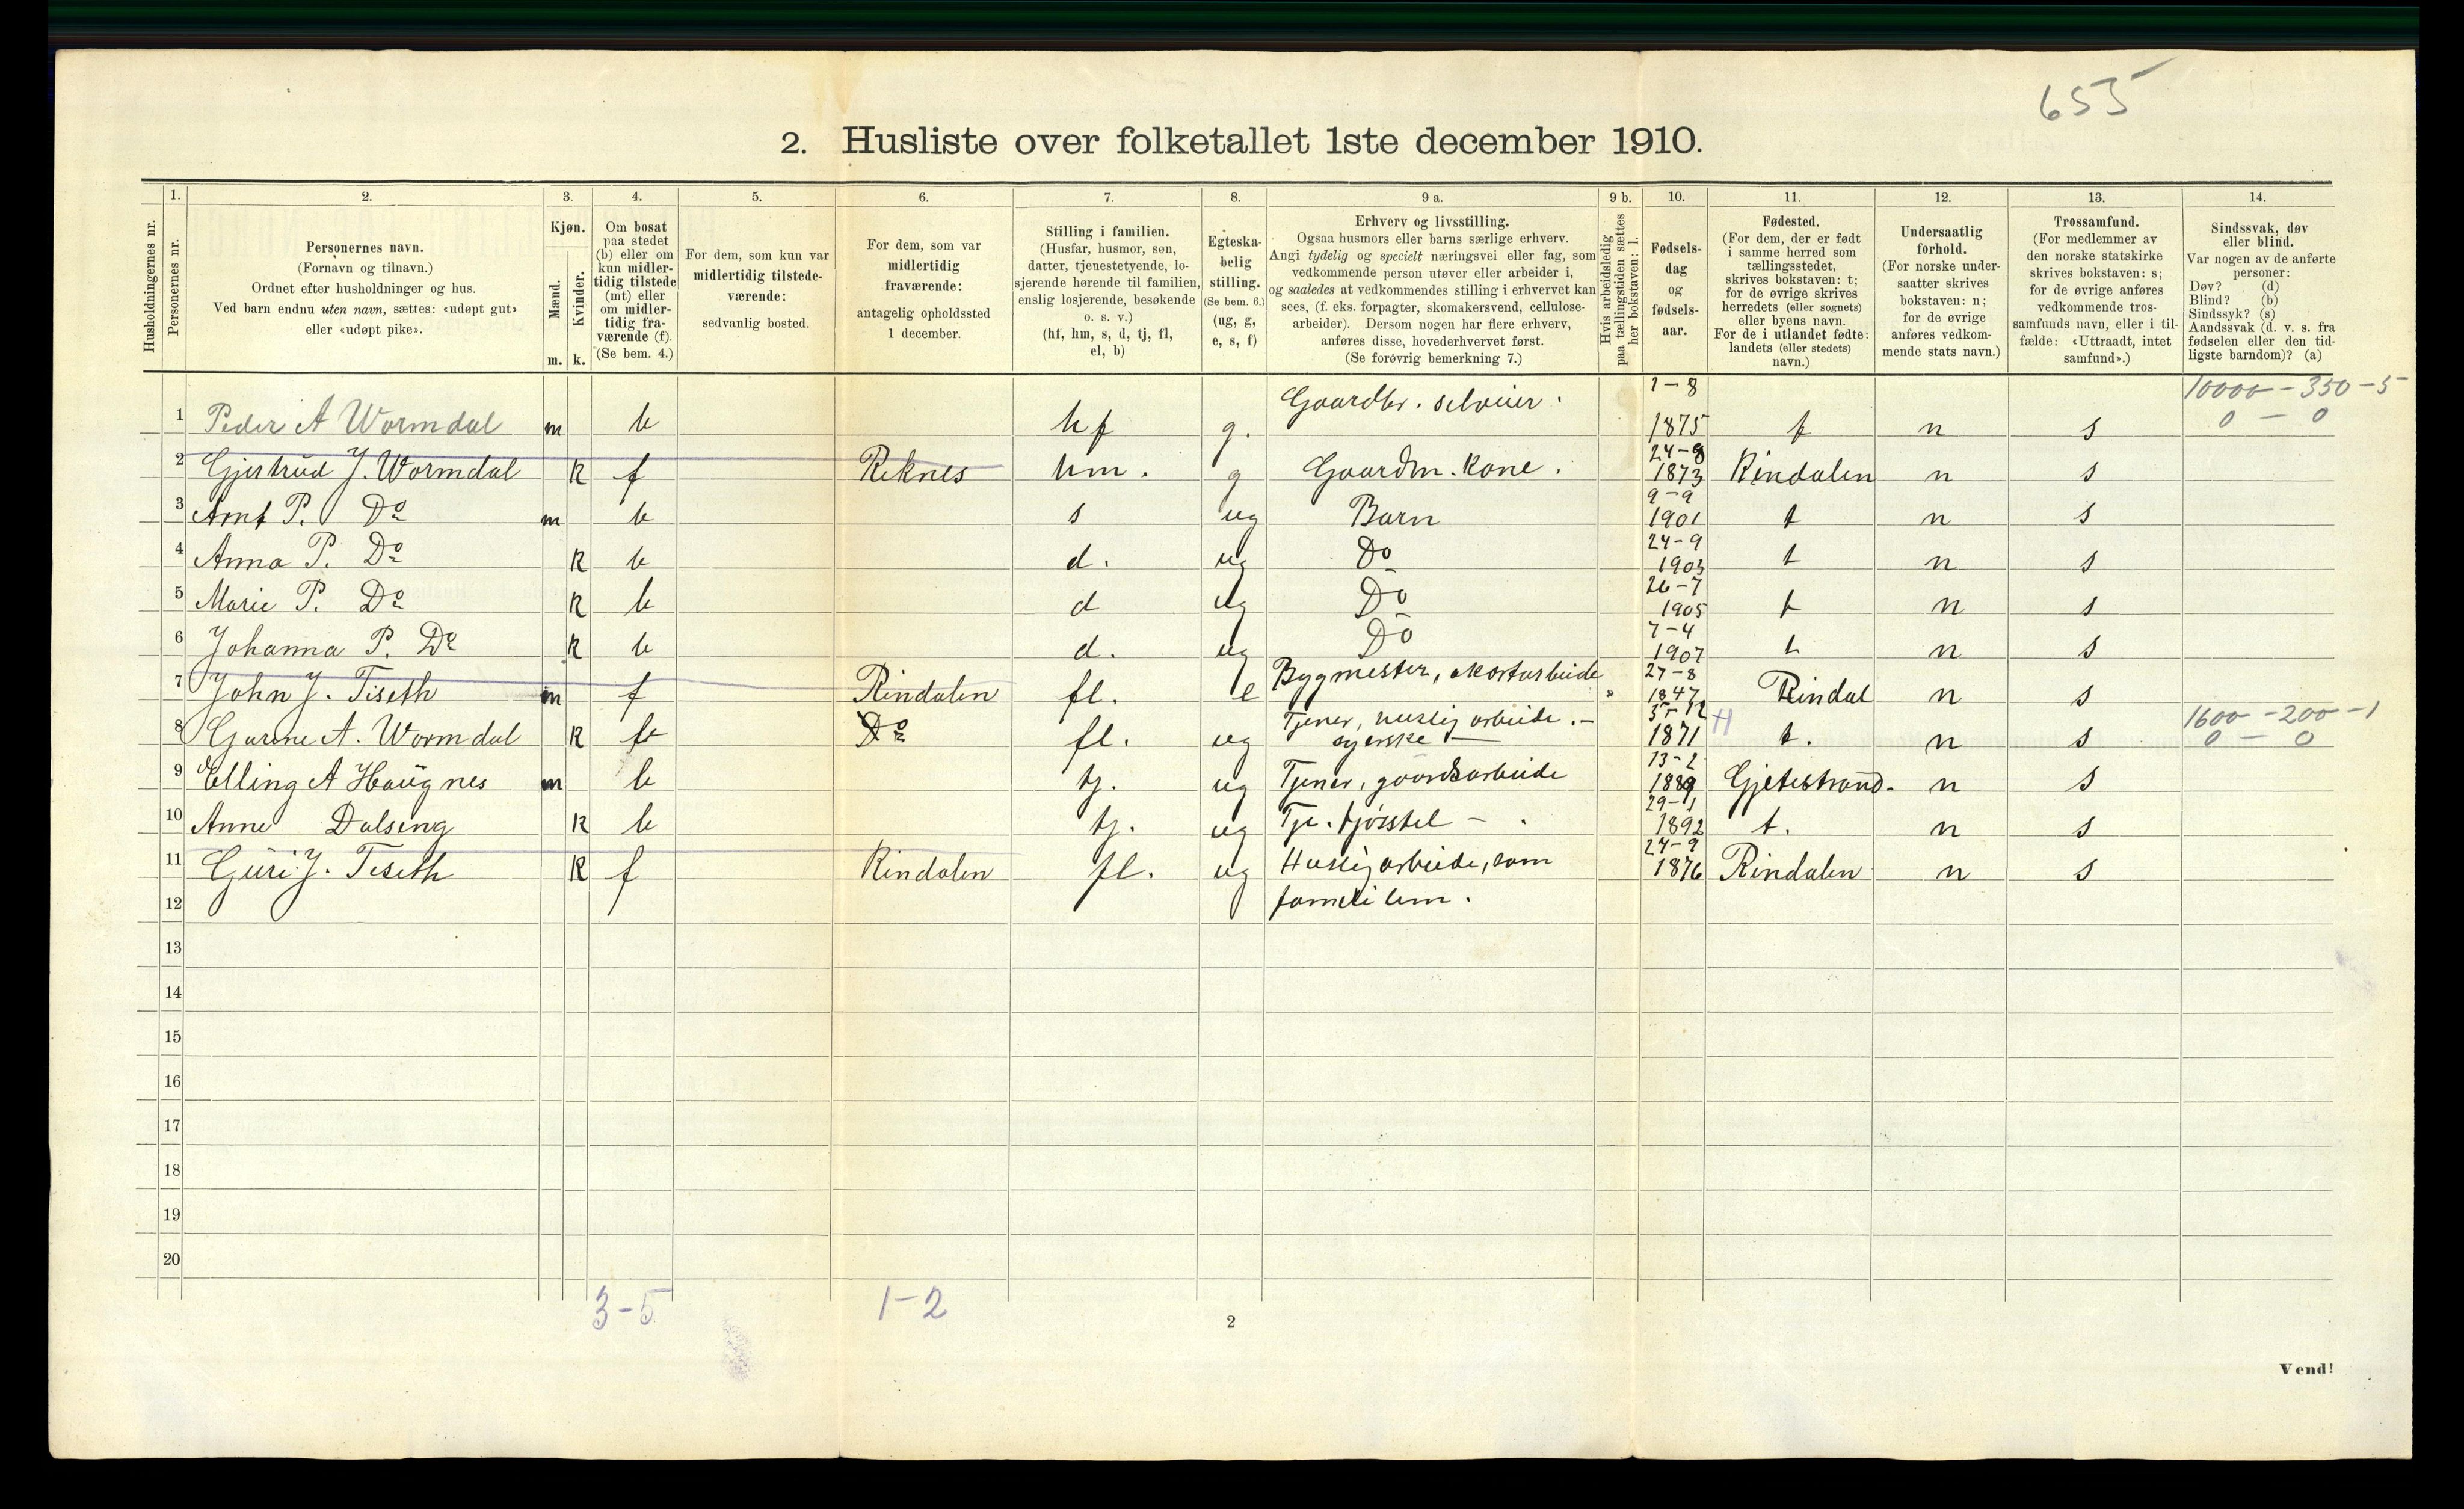 655
2. Husliste over folketallet 1ste december 1910.
Husholdningernes nr.
1.
Personernes nr.
2.
Personernes navn.
(Fornavn og tilnavn.)
Ordnet efter husholdninger og hus.
Ved barn endnu uten navn, sættes: «udøpt gut»
eller «udøpt pike».
3.
Kjøn.
Mænd.
Kvinder.
m.
k.
4.
Om bosat
paa stedet
(b) eller om
kun midler-
tidig tilstede
(mt) eller
om midler-
tidig fra-
værende (f).
(Se bem. 4.)
5.
For dem, som kun var
midlertidig tilstede-
værende:
sedvanlig bosted.
6.
For dem, som var
midlertidig
fraværende:
antagelig opholdssted
1 december.
7.
Stilling i familien.
(Husfar, husmor, søn,
datter, tjenestetyende, lo-
sjerende hørende til familien,
enslig losjerende, besøkende
o. s. v.)
(hf, hm, s, d, tj, fl,
el, b)
8.
Egteska-
belig
stilling.
(Se bem. 6.)
(ug, g,
e, s, f)
9 a.
Erhverv og livsstilling.
Ogsaa husmors eller barns særlige erhverv.
Angi tydelig og specielt næringsvei eller fag, som
vedkommende person utøver eller arbeider i,
og saaledes at vedkommendes stilling i erhvervet kan
sees, (f. eks. forpagter, skomakersvend, cellulose-
arbeider). Dersom nogen har flere erhverv,
anføres disse, hovederhvervet først.
(Se forøvrig bemerkning 7.)
9 b.
Hvis arbeidsledig
paa tællingstiden sættes
her bokstaven: l.
10.
Fødsels-
dag
og
fødsels-
aar.
11.
Fødested.
(For dem, der er født
i samme herred som
tællingsstedet,
skrives bokstaven: t;
for de øvrige skrives
herredets (eller sognets)
eller byens navn.
For de i utlandet fødte:
landets (eller stedets)
navn.)
12.
Undersaatlig
forhold.
(For norske under-
saatter skrives
bokstaven: n;
for de øvrige
anføres vedkom-
mende stats navn.)
13.
Trossamfund.
(For medlemmer av
den norske statskirke
skrives bokstaven: s;
for de øvrige anføres
vedkommende tros-
samfunds navn, eller i til-
fælde: «Uttraadt, intet
samfund».)
14.
Sindssvak, døv
eller blind.
Var nogen av de anførte
personer:
Døv? (d)
Blind? (b)
Sindssyk? (s)
Aandssvak (d. v. s. fra
fødselen eller den tid-
ligste barndom)? (a)
1 Peder A Wormdal m b hf g. Gaardbr. selveier. 1-8 1875 t n s 10000-350-5
0 - 0
2 Gjertrud J. Wormdal k f Reknes hm. g Gaardm. kone. 24-8 1873 Rindalen n s
3 Arnt P. Do m b s ug Barn 9-9 1901 t n s
4 Anna P. Do k b d. ug Do 24-9 1903 t n s
5 Marie P. Do k b d ug Do 26-7 1905 t n s
6 Johanna P. Do k b d. ug Do 7-4 1907 t n s
7 John J. Tiseth m f Rindalen fl. e Bygmester, akortarbeide " 27-8 1847 Rindal n s
8 Gurine A. Wormdal k b Do fl. ug Tjener, huslig arbeide.-
syerske 1871 H t. n s 1600-200-1
0 - 0
9 Elling A Haugnes m b tj. ug Tjener, gaardsarbeide 13-2 1889 Gjetestrand. n s
10 Anne Dalseng k b tj. ug Tje. fjøsstel - . 29-1 1892 t. n s
11 Guri J. Tiseth k f Rindalen fl. ug Huslig arbeide, som 24-9 1876 Rindalen n s
12 famililem.
13
14
15
16
17
18
19
20
3-5
1-2
2
Vend!